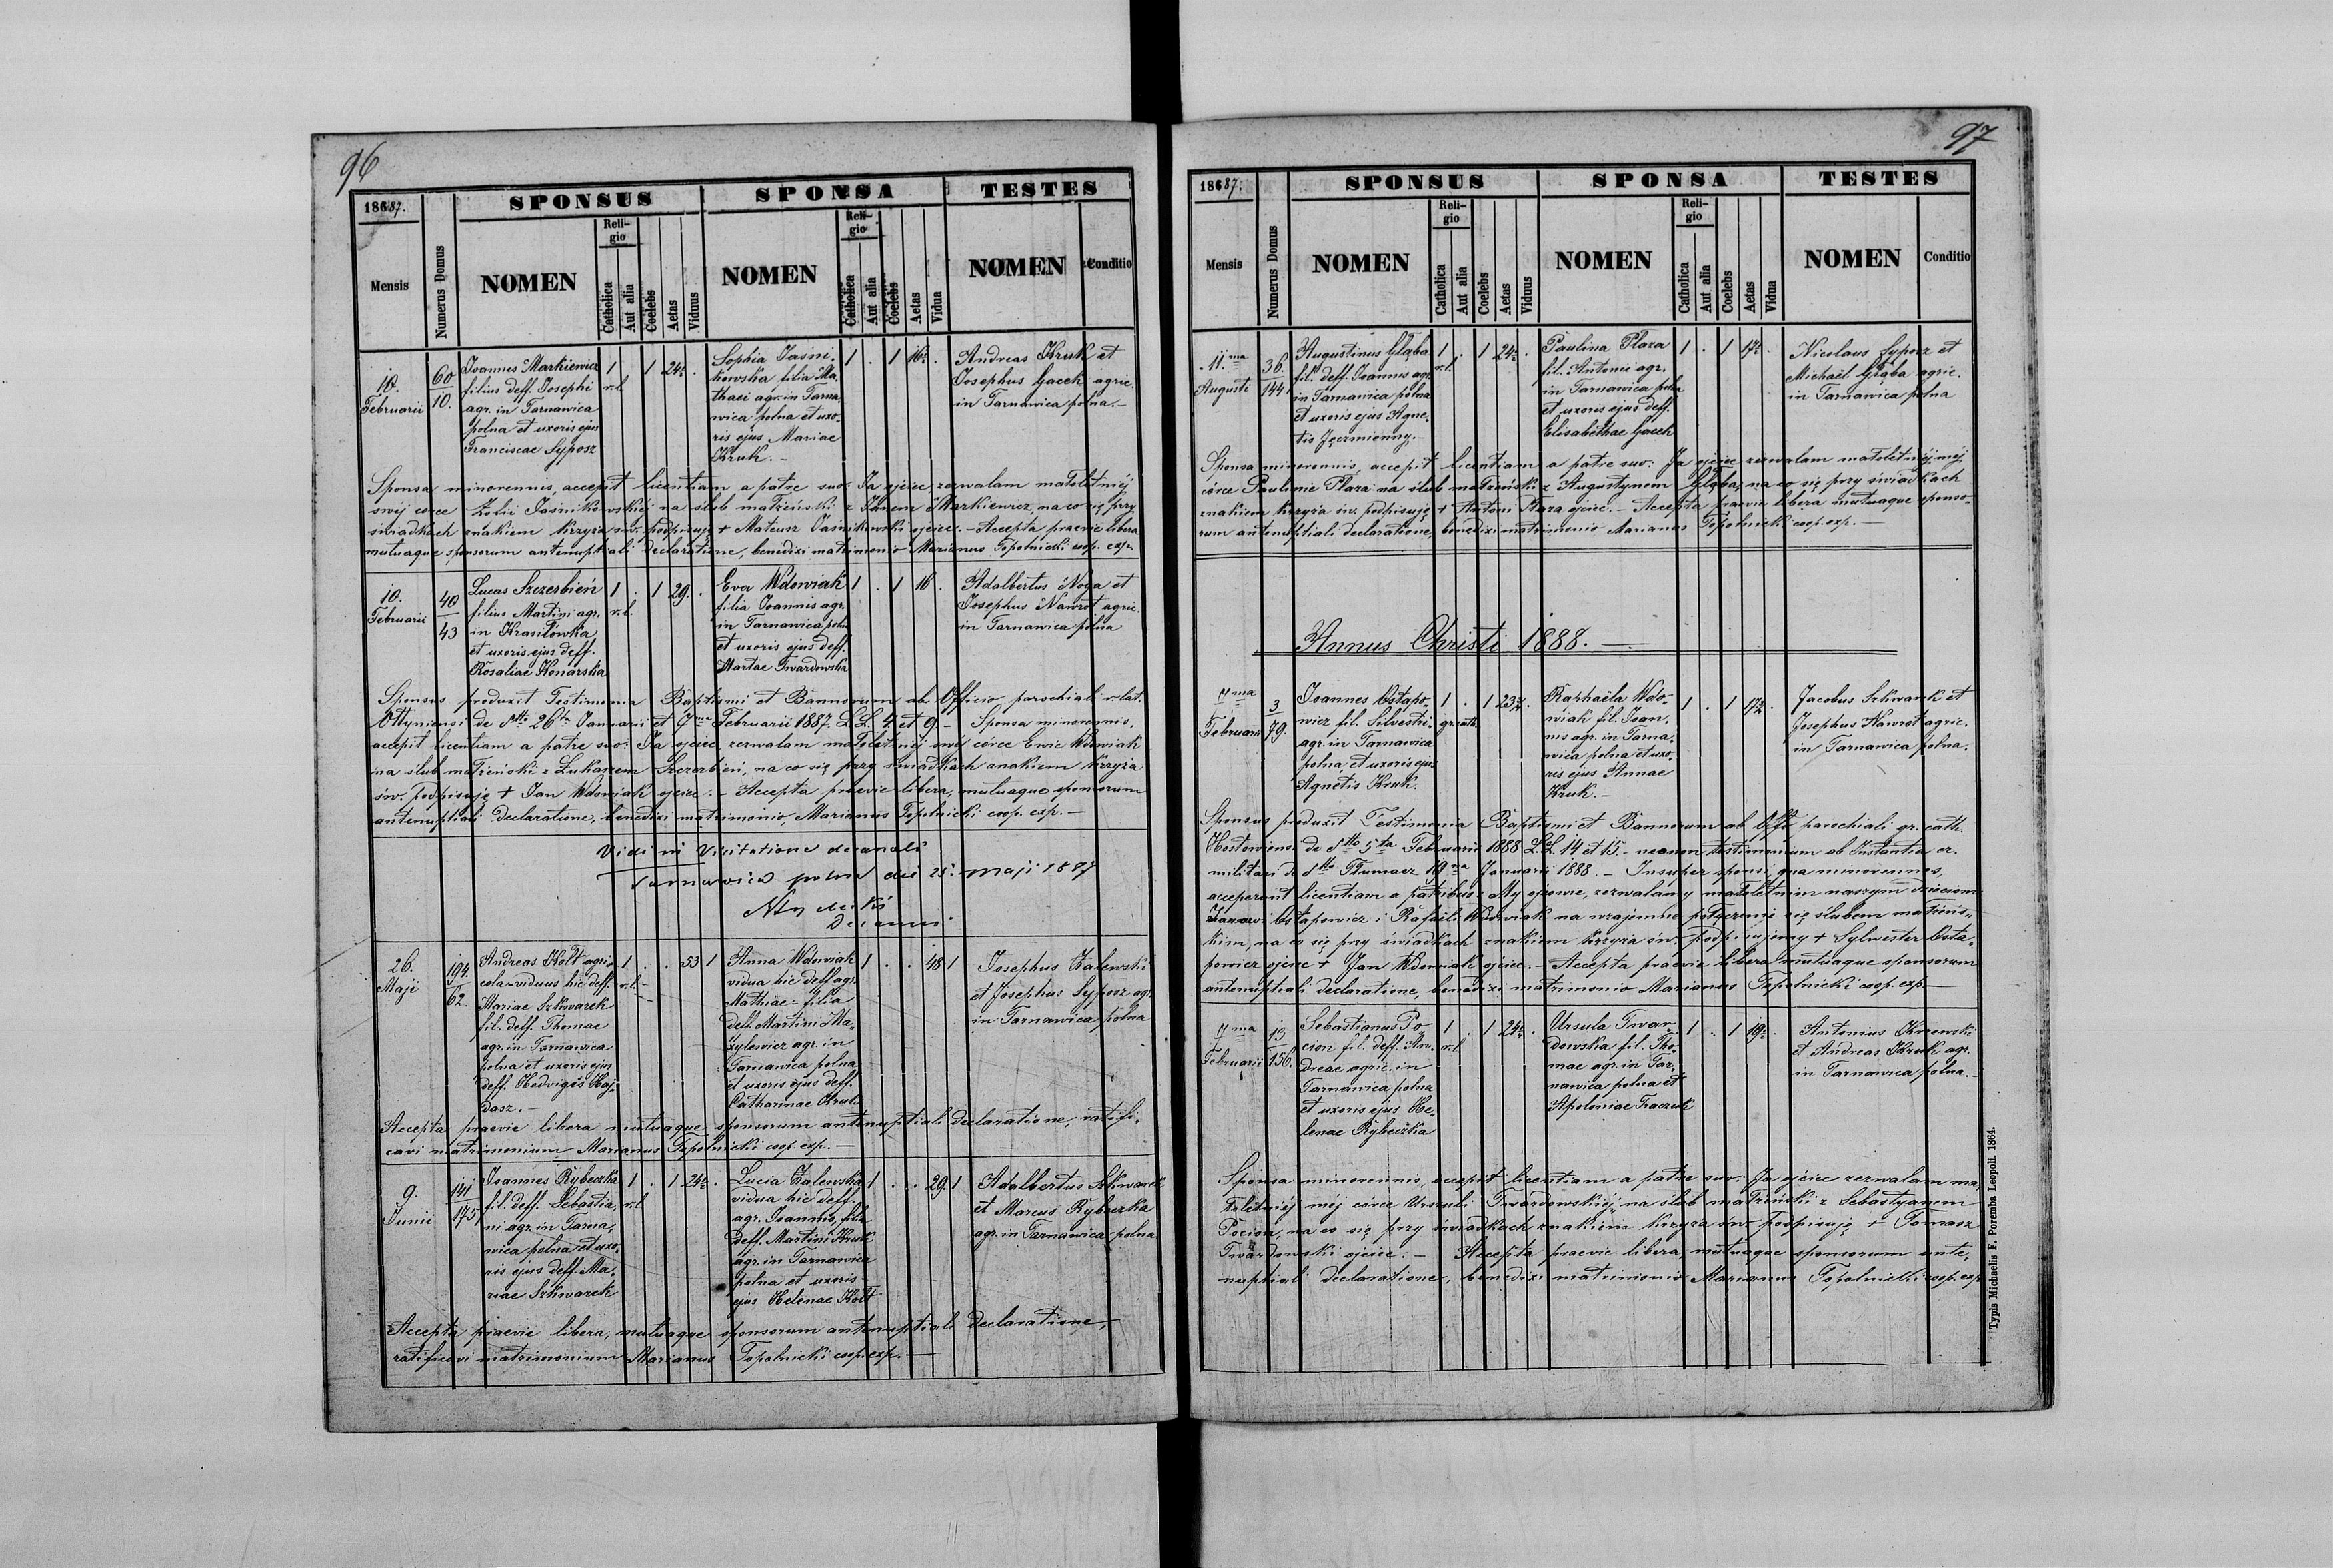 96
1887.
SPONSUS
SPONSA
TESTES
Mensis
Numerus Domus
NOMEN
Religio
Catholica
Aut alia
Coelebs
Aetas
Viduus
NOMEN
Religio
Catholica
Aut alia
Coelebs
Aetas
Vidua
NOMEN
Conditio
10.
Februarii
60
10.
Joannes Markiewicz
filius deff. Josephi
agr. in Tarnawica
polna et uxoris ejus
Franciscae Syposz
1
r.l.
1
24½
.
Sophia Jasni-
kowska filia Ma-
thaei agr. in Tarna-
wica polna et uxo-
ris ejus Mariae
Kruk. –
1
.
1
16½
.
Andreas Kruk et
Josephus Gacek agric.
in Tarnawica polna. –
Sponsa minorennis, accepit licentiam a patre suo: Ja ojciec zezwalam małoletniéj
swéj córce Zofii Jaśnikowskiéj na ślub małżeński z Janem Markiewicz, na co się przy
świadkach znakiem krzyża św. podpisuję + Mateusz Jaśnikowski ojciec. – Accepta praevie libera
mutuaque sponsorum antenuptiali declaratione, benedixi matrimonio Marianus Topolnicki coop. exp.
10.
Februarii
40
43
Lucas Szczerbień
filius Martini agr.
in Krasiłówka
et uxoris ejus deff.
Rosaliae Konarska
1
r.l.
.
1
29.
.
Eva Wdowiak
filia Joannis agr.
in Tarnawica polna
et uxoris ejus deff.
Martae Twardowska
1
.
1
16
.
Adalbertus Noga et
Josephus Nawrot agric.
in Tarnawica polna
Sponsus produxit Testimonia Baptismi et Bannorum ab Officio parochiali r. lat.
Ottyniensi de dtto 26ta Januarii et 7ma Februarii 1887 LL. 4 et 9 – Sponsa minorennis,
accepit licentiam a patre suo: Ja ojciec zezwalam małoletniéj swéj córce Ewie Wdowiak
na ślub małżeński z Łukaszem Szczerbień, na co się przy świadkach znakiem krzyża
św. podpisuję + Jan Wdowiak ojciec. – Accepta praevie libera, mutuaque sponsorum
antenuptiali declaratione, benedixi matrimonio, Marianus Topolnicki coop. exp. –
Vidi in Visitatione decanali
Tarnawica polna die 25. Maji 1887
Decanus
26.
Maji
194.
62.
Andreas Kołt agri-
cola – viduus hic deff.
Mariae Szkwarek
fil. deff. Thomae
agr. in Tarnawica
polna et uxoris ejus
deff. Hedvigis Haj-
dasz. –
1
r.l.
.
.
53
1
Anna Wdowiak
vidua hic deff. agr.
Mathiae – filia
deff. Martini Ma-
zylewicz agr. in
Tarnawica polna
et uxoris ejus deff.
Catharinae Kruk
1
.
.
48
1
Josephus Zalewski
et Josephus Syposz agr.
in Tarnawica polna
Accepta praevie libera mutuaque sponsorum antenuptiali declaratione, ratifi-
cavi matrimonium Marianus Topolnicki coop. exp. –
9.
Junii
141
175
Joannes Rybeczka
fil. deff. Sebastia-
ni agr. in Tarna-
wica polna et uxo-
ris ejus deff. Ma-
riae Szkwarek
1
r.l.
.
1
24½
.
Lucia Zalewska
vidua hic deff.
agr. Joannis, filia
deff. Martini Kruk
agr. in Tarnawica
polna et uxoris
ejus Helenae Kołt
1
.
.
29.
1
Adalbertus Szkwarek
et Marcus Rybeczka
agr. in Tarnawica polna
Accepta praevie libera, mutuaque sponsorum antenuptiali declaratione,
ratificavi matrimonium Marianus Topolnicki coop. exp. –
97
1887.
SPONSUS
SPONSA
TESTES
Mensis
Numerus Domus
NOMEN
Religio
Catholica
Aut alia
Coelebs
Aetas
Viduus
NOMEN
Religio
Catholica
Aut alia
Coelebs
Aetas
Vidua
NOMEN
Conditio
11.ma
Augusti
36.
144
Augustinus Głąba
fil. deff. Joannis agr.
in Tarnawica polna
et uxoris ejus Agne-
tis Jęczmienny. –
1
r.l.
.
1
24½
.
Paulina Płaza
fil. Antonii agr.
in Tarnawica polna
et uxoris ejus deff.
Elisabethae Gacek
1
.
1
17½
.
Nicolaus Syposz et
Michael Głąba agric.
in Tarnawica polna
Sponsa minorennis, accepit licentiam a patre suo: Ja ojciec zezwalam małoletniéj méj
córce Paulinie Płaza na ślub małżeński z Augustynem Głąba, na co się przy świadkach
znakiem krzyża św. podpisuję + Antoni Płaza ojciec. – Accepta praevie libera mutuaque sponso-
rum antenuptiali declaratione, benedixi matrimonio Marianus Topolnicki coop. exp. –
Annus Christi 1888. –
7ma
Februarii
3
79.
Joannes Ostapo-
wicz fil. Silvestri
agr. in Tarnawica
polna et uxoris ejus
Agnetis Kruk.
1
gr. cath.
.
1
23½
.
Raphaëla Wdo-
wiak fil. Joan-
nis agr. in Tarna-
wica polna et uxo-
ris ejus Annae
Kruk. –
1
.
1
17½
.
Jacobus Szkwarek et
Josephus Nawrot agric.
in Tarnawica polna.
Sponsus produxit Testimonia Baptismi et Bannorum ab Offo parochiali gr. cath.
Hostowiensi de dtto 5ta Februarii 1888 LL. 14 et 15. – necnon testimonium ab Instantia cr.
militari de dtto Tłumacz 19na Januarii 1888. – Insuper sponsi, qua minorennes,
acceperunt licentiam a patribus: My ojcowie, zezwalamy małoletnim naszym dzieciom
Janowi Ostapowicz i Rafaeli Wdowiak na wzajemne połączenie się ślubem małżeńs-
kim, na co się przy świadkach znakiem krzyża św. podpisujemy + Sylwester Osta-
powicz ojciec + Jan Wdowiak ojciec. – Accepta praevie libera mutuaque sponsorum
antenuptiali declaratione, benedixi matrimonio Marianus Topolnicki coop. exp. –
7ma
Februarii
15
156.
Sebastianus Po-
cion fil. deff. An-
dreae agric. in
Tarnawica polna
et uxoris ejus He-
lenae Rybeczka
1
r.l.
.
1
24½
.
Ursula Twar-
dowska fil. Tho-
mae agr. in Tar-
nawica polna et
Apoloniae Traczuk
1
.
1
19½
.
Antonius Kurowski
et Andreas Kruk agr.
in Tarnawica polna. –
Sponsa minorennis, accepit licentiam a patre suo: Ja ojciec zezwalam ma-
łoletniéj méj córce Urszuli Twardowskiéj, na ślub małżeński z Sebastyanem
Pocion, na co się przy świadkach znakiem krzyża św. podpisuję + Tomasz
Twardowski ojciec. – Accepta praevie libera mutuaque sponsorum ante-
nuptiali declaratione, benedixi matrimonio Marianus Topolnicki coop. exp.
Typis Michaelis F. Poremba Leopoli. 1864.